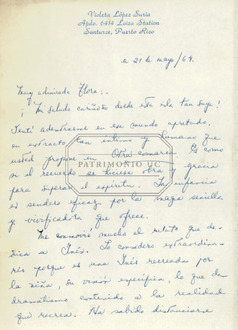 Violeta López Suria
Apdo. 6434 Loiza Station
Santurce, Puerto Rico
a 21 de mayo/64.
Muy admirada Flora:-
¡Un saludo cariñoso desde esta isla tan suya!
Sentí adentrarme en ese mundo apretado,
en extracto tan íntimo y humano que
usted propone en Otra comarca. Es como
si el recuerdo se hiciese obra y gracia
PATRIMONIO UC
para superar el espíritu. La infancia
es sendero eficaz por la magia sencilla
y vivificadora que ofrece.
Me conmovió mucho el relato que de-
dica a Inés. Lo considero extraordina-
rio porque es una Inés recreada por
la niña, su visión específica, lo que da
dramatismo contenido a la realidad
que recrea. Ha sabido distanciarse